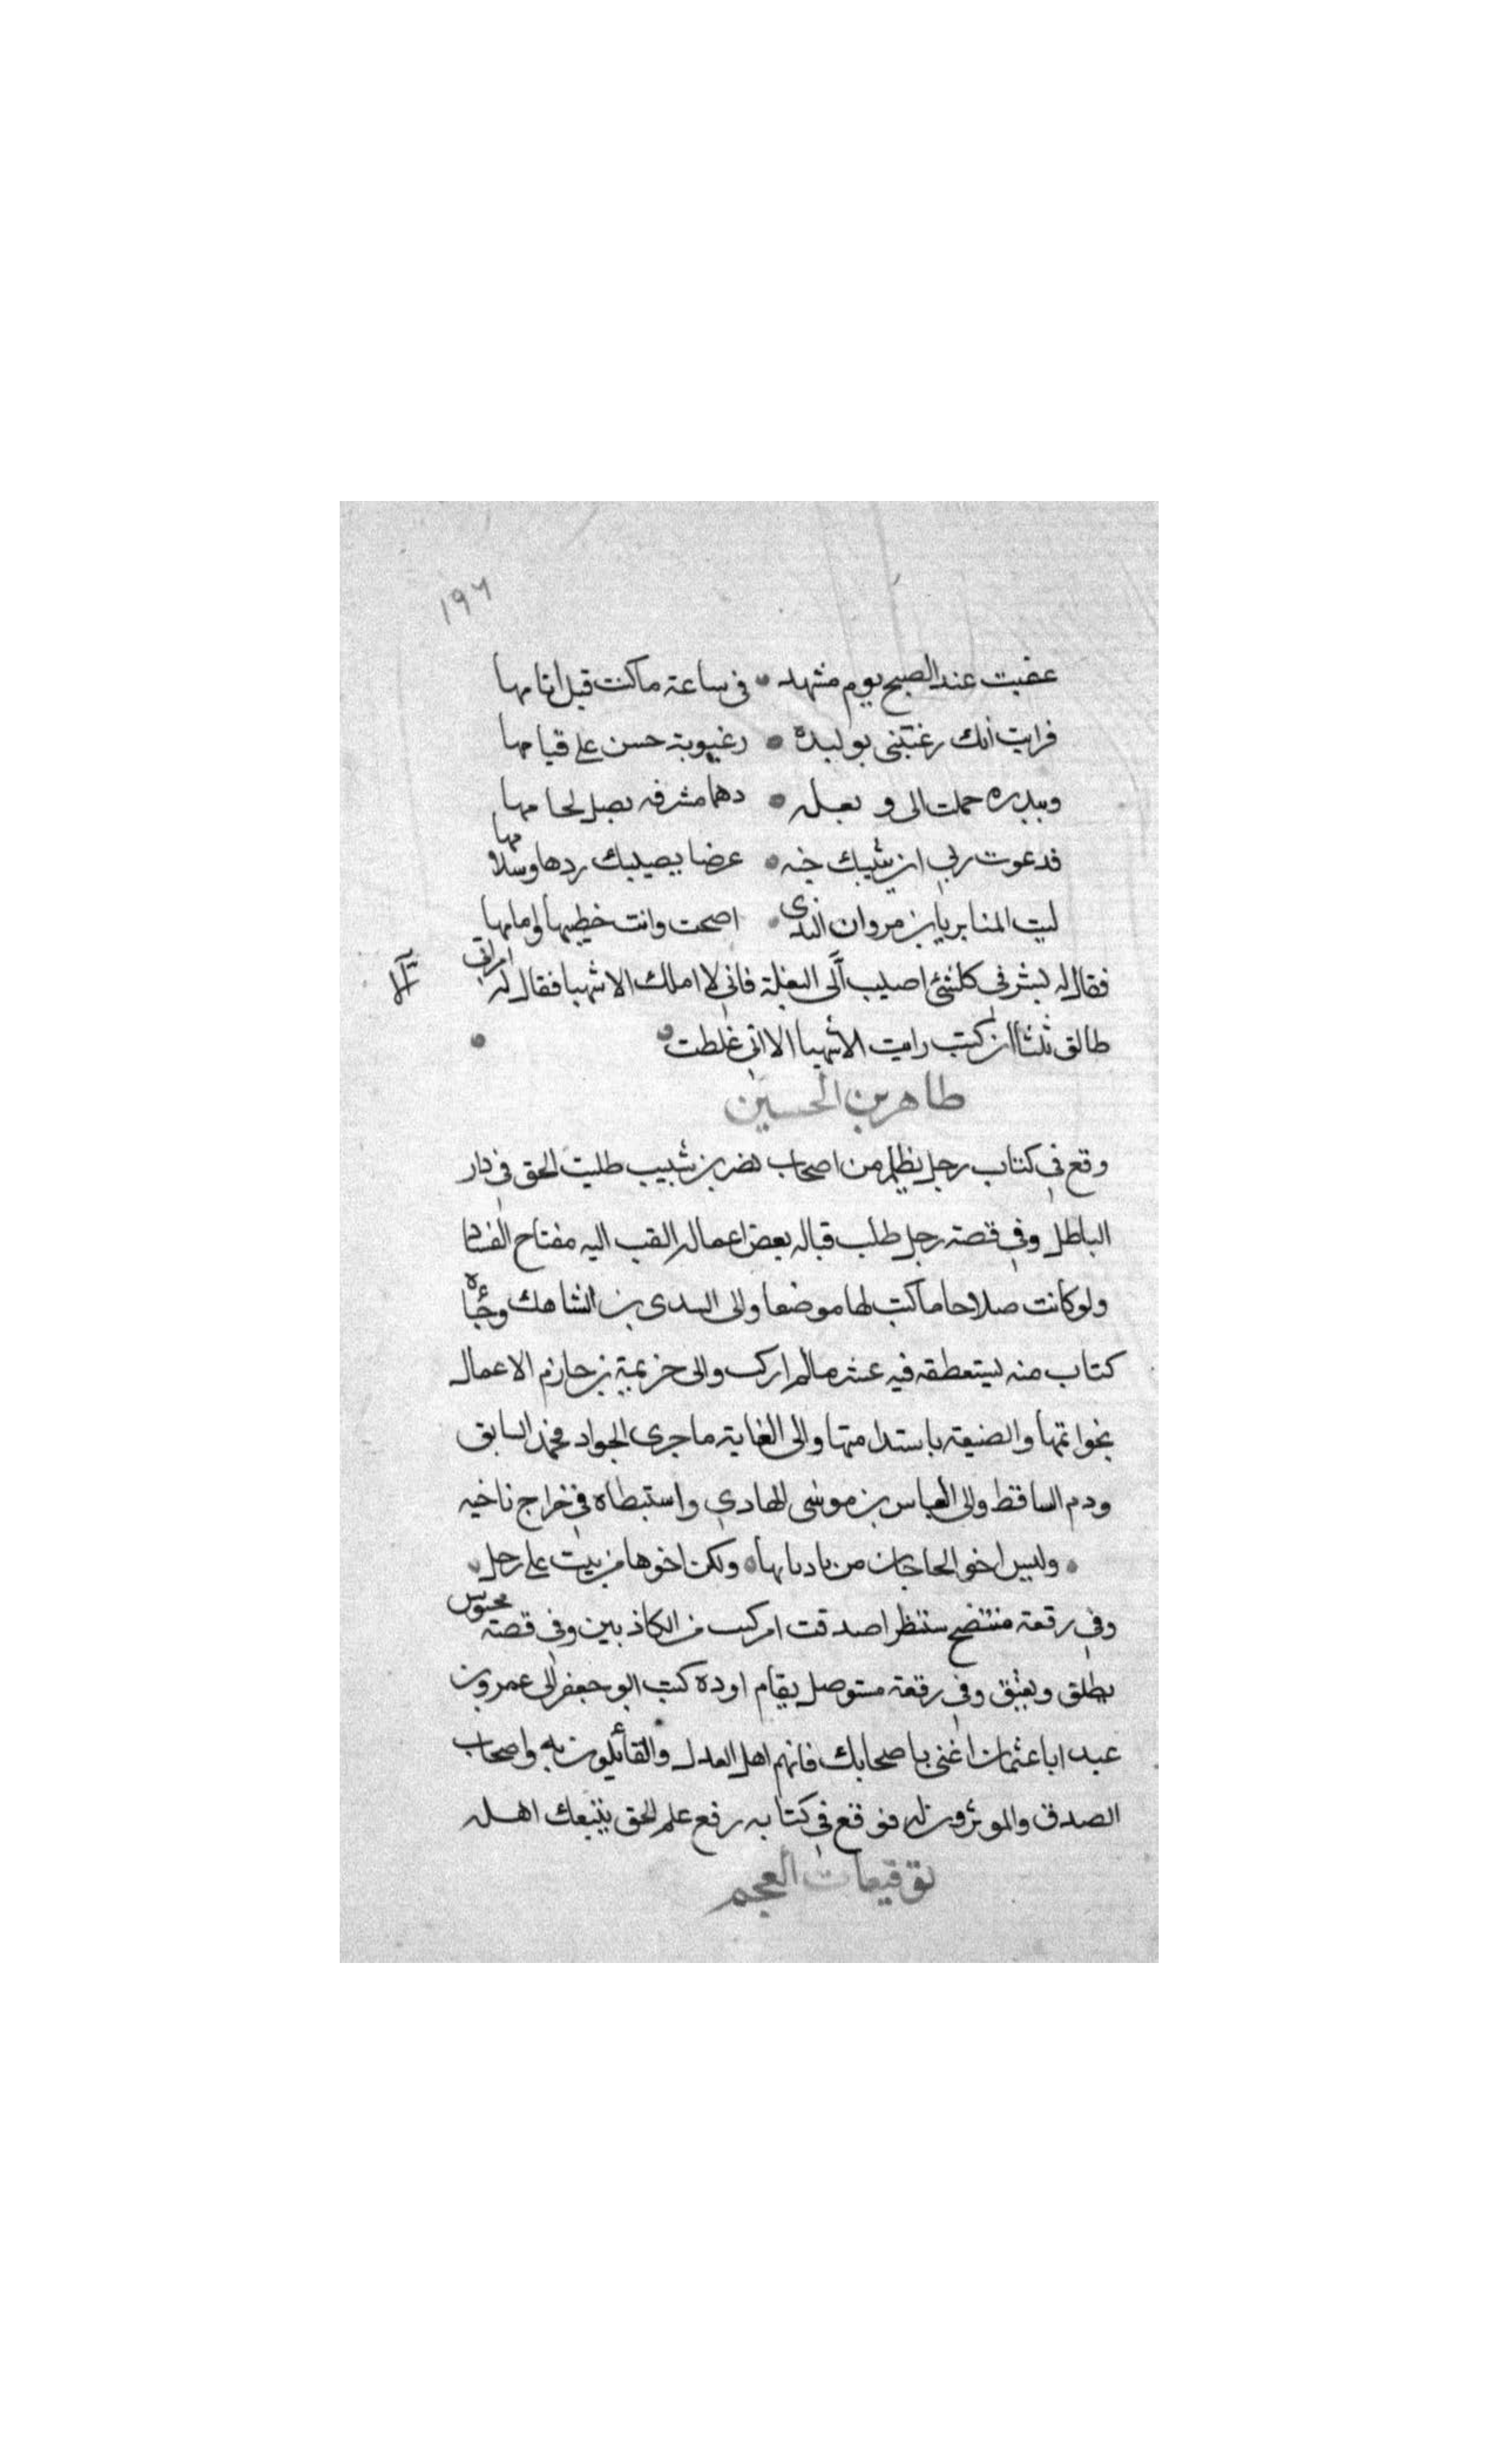 ١٩٦
عفبت عند الصبح يوم مشهد • في ساعة ما كنت قبل انامها
فرايت انك رغبتني بوليدة • رغبوبة حسن على قيامها
وببدره حملت الى و بعله • دهما مشرفه يصل لجامها
فدعوت ربي ان يثيبك جنه • عرضا يصيبك ردها وسلامها
ليت المنابر يا بن مروان الندى • اصحت وانت خطيبها وامامها
فقال له بشر في كلشئ اصيب الّى البغلة فاني لا املك الا شهبا فقال له امراتي
طالق ثلثا ان كنت رايت الا شهبا الا اني غلطت •
طاهر بن الحسين
وقع في كتاب رجل يظلم من اصحاب نصر بن شبيب طلبت الحق في دار
الباطل وفي قصة رجل طلب قباله بعض اعماله القب اليه مفتاح الفساد
ولو كانت صلاحا ما كنت لها موضعا والى السدى بن الشاهك وجاه
كتاب منه يستعطفه فيه عشر مالم ارك والى خزيمة بن حازم الاعمال
بخواتمها والصنيعة باستدامتها والى الغاية ما جرى الجواد فحمد السابق
وذم الساقط والى العباس بن موسى الهادي واستبطاه في خراج ناحيه
• وليس اخو الحاجات من بات نايما • ولكن اخوها من يبيت على رحل •
وفي رقعة متنضح سننظر اصدقت ام كنت من الكاذبين وفي قصة محبوس
يطلق ويعتق وفي رقعة مستوصل يقام اوده كتب ابو جعفر الى عمرو بن
عبيد ابا عثمان اغني باصحابك فانهم اهل العدل والقائلون به واصحاب
الصدق والموثرون له فوقع في كتابه رفع علم الحق يتبعك اهله
توقيعات العجم